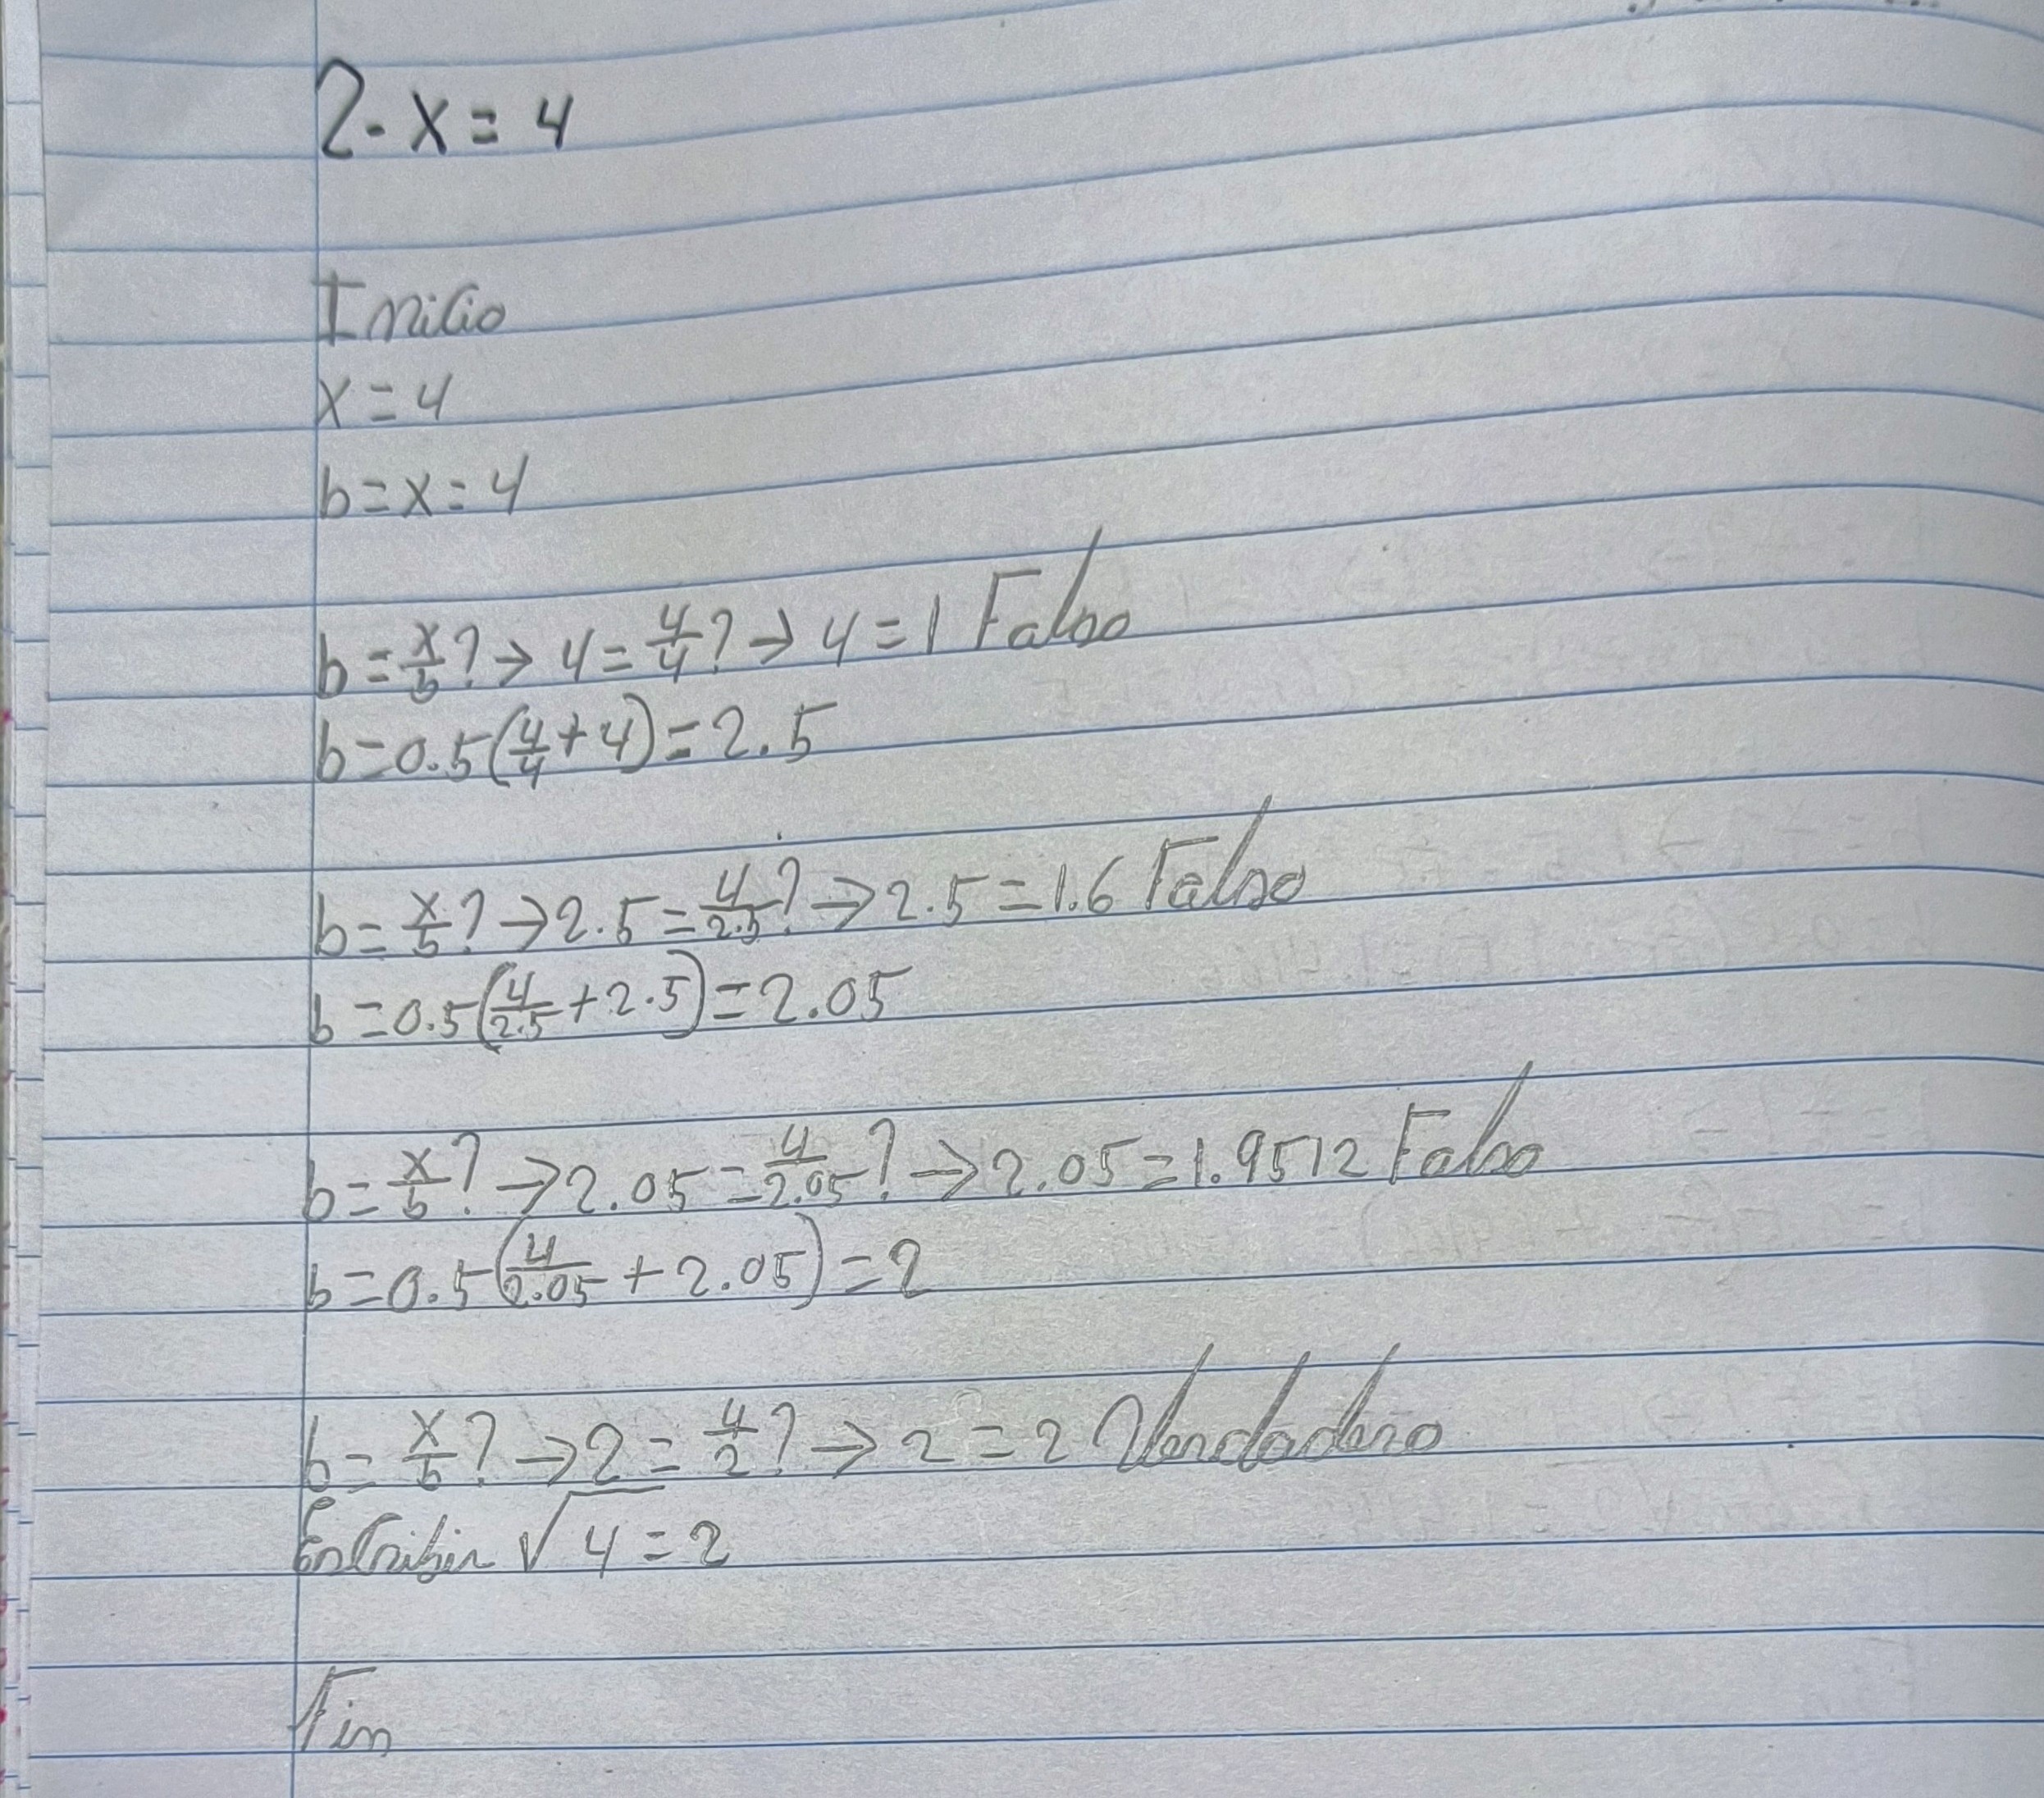 2. x = 4
Inicio
x = 4
b = x = 4
b = x/b ? → 4 = 4/4 ? → 4 = 1 Falso
b = 0.5(4/4 + 4) = 2.5
b = x/b ? → 2.5 = 4/2.5 ? → 2.5 = 1.6 Falso
b = 0.5(4/2.5 + 2.5) = 2.05
b = x/b ? → 2.05 = 4/2.05 ? → 2.05 = 1.9512 Falso
b = 0.5(4/2.05 + 2.05) = 2
b = x/b ? → 2 = 4/2 ? → 2 = 2 Verdadero
Escribir √4 = 2
Fin